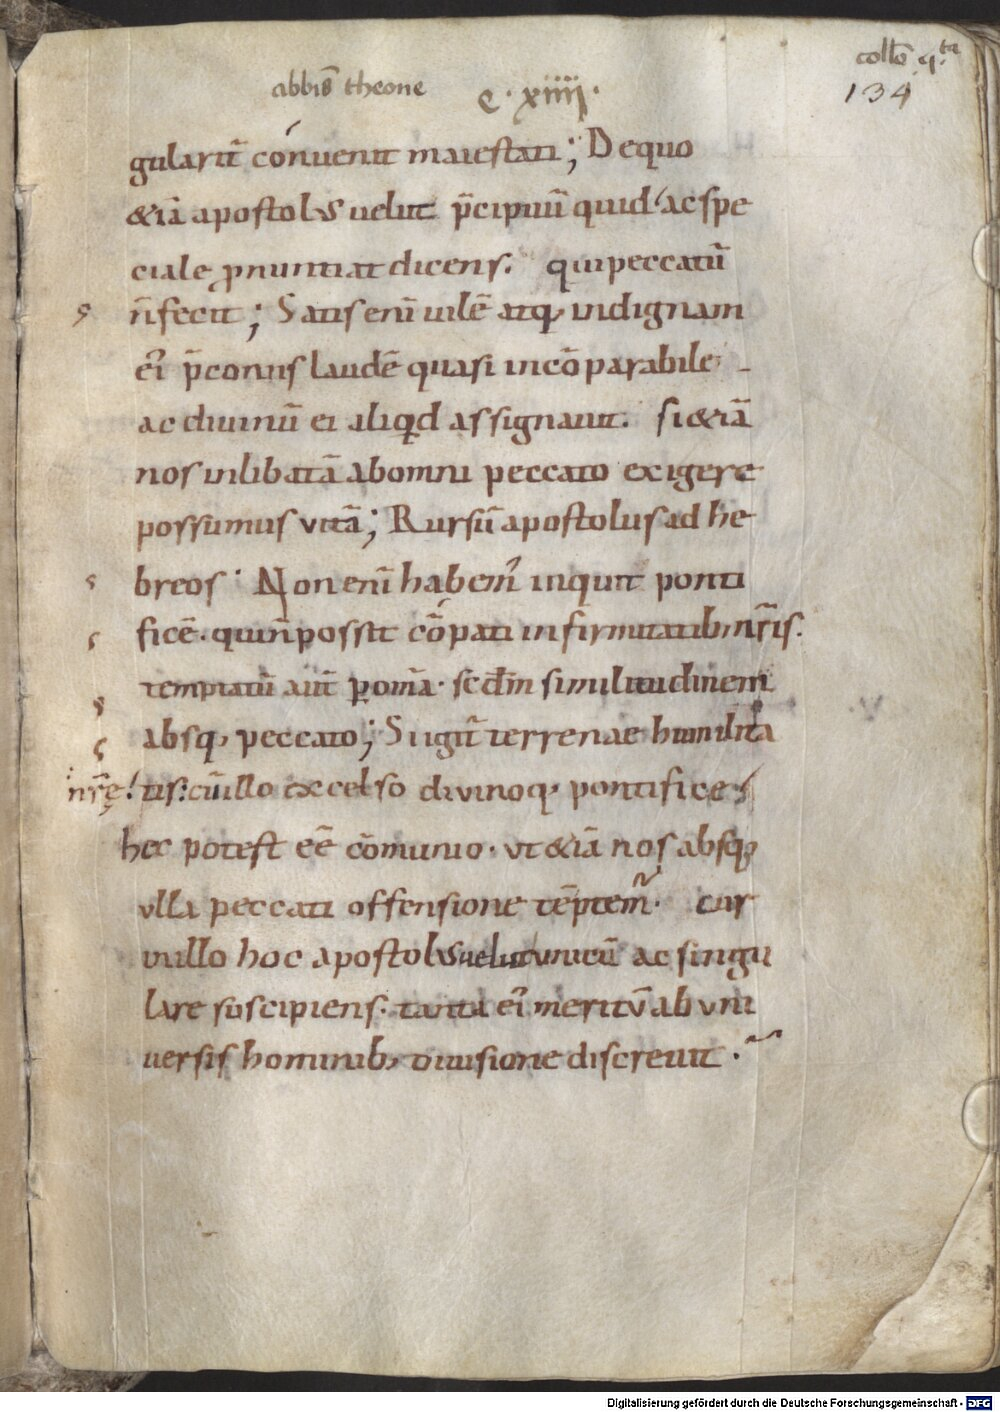 abbīs theone
c · xiiii ·
coll̄o q.ta
134
gularit̄ cónuenit maiestati; Dequo
&iā apostolus uelut p̄cipuū quid ac spe
ciale pnuntiat dicens. qui peccatū
n̄ fecit; Satis enī uilē atq; indignam
ei p̄coniis laudē quasi incōparabile
ac diuinū ei aliqd assignauit. si &iā
nos inlibatā ab omni peccato exigere
possumus vitā; Rursū apostolus ad he
breos · Non enī habem inquit ponti
ficē. qui n̄ possit cōpati infirmitatib; nr̄is.
temptatū aut̄ p om̄a. scd̄m similitudinem
absq; peccato; Si igit̄ terrenae humilita
nr̄ę tis: cū illo excelso diuinoq; pontifice
hec potest eē cōmunio. vt &iā nos absq;
vlla peccati offensione tēptem̄. cur
in illo hoc apostolus uelut unicū ac singu
lare suscipiens. tanta ei meritū ab vni
uersis hominib; diuisione discreuit.
Digitalisierung gefördert durch die Deutsche Forschungsgemeinschaft - DFG